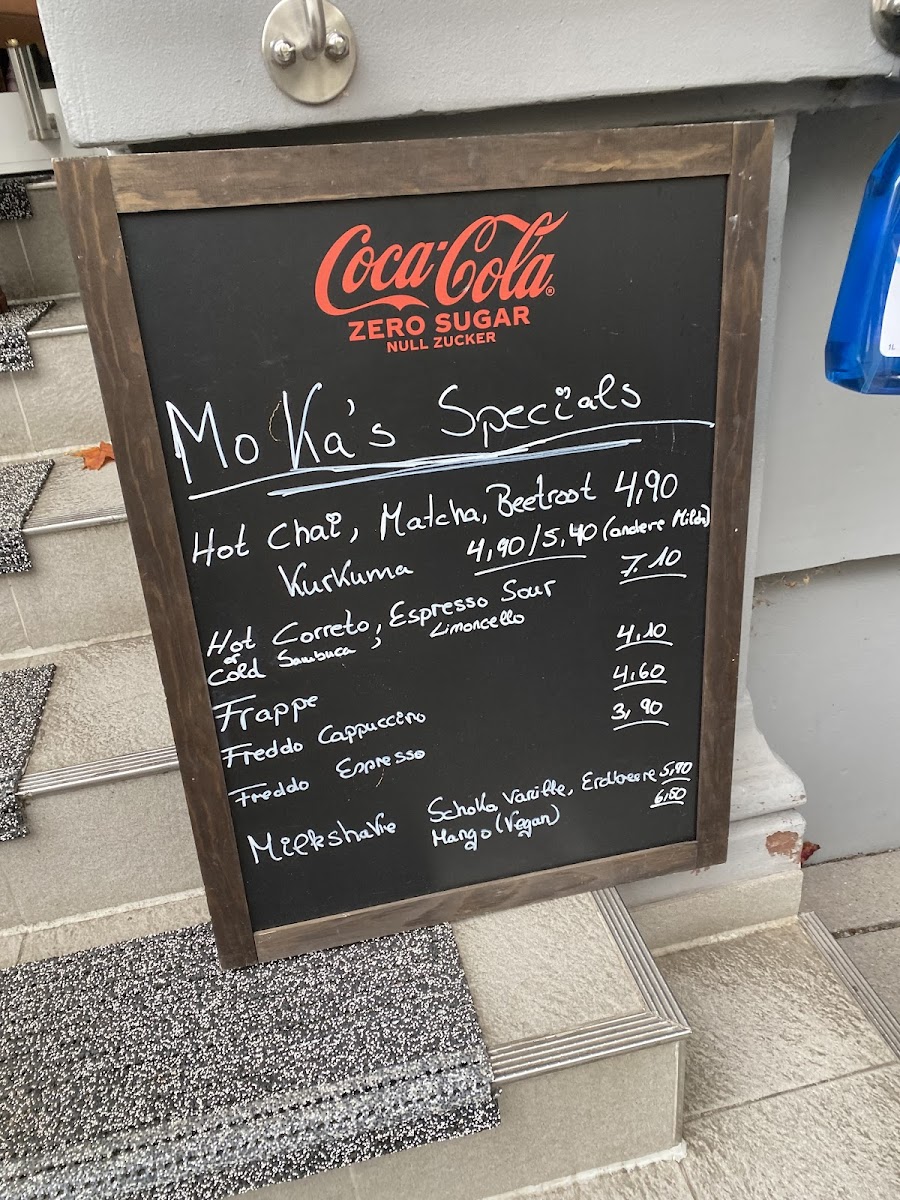 Coca-Cola®
ZERO SUGAR
NULL ZUCKER
Mo Ka's Specials
Hot Chai, Matcha, Beetroot 4,90
Kurkuma 4,90/5,40 (andere Milch)
Hot Correto, Espresso Sour 7.10
or Cold Sambuca, Limoncello
Frappe 4,10
Freddo Cappuccino 4,60
Freddo Espresso 3,90
Milkshake Schoko, Vanille, Erdbeere 5,90
Mango (Vegan) 6,80
1L